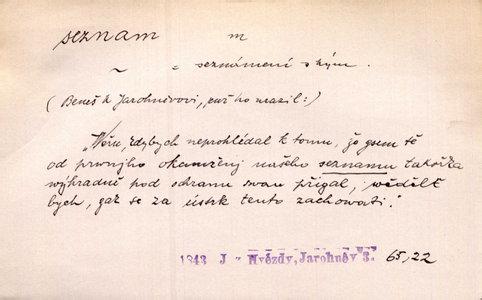 seznam m
~ = seznámení s kým.
(Beneš k Jarohněvovi, enž ho urazil:)
„Věru, kdybych neprohlédal k tomu, žo gsem tě
od prwnjho okamženj našeho seznamu takořka
výhradně pod ochranu swau přigal, wěděl
bych, gak se za úštrk tento zachowati."
1843 J. z Hvězdy, Jarohněv 3. 65, 22